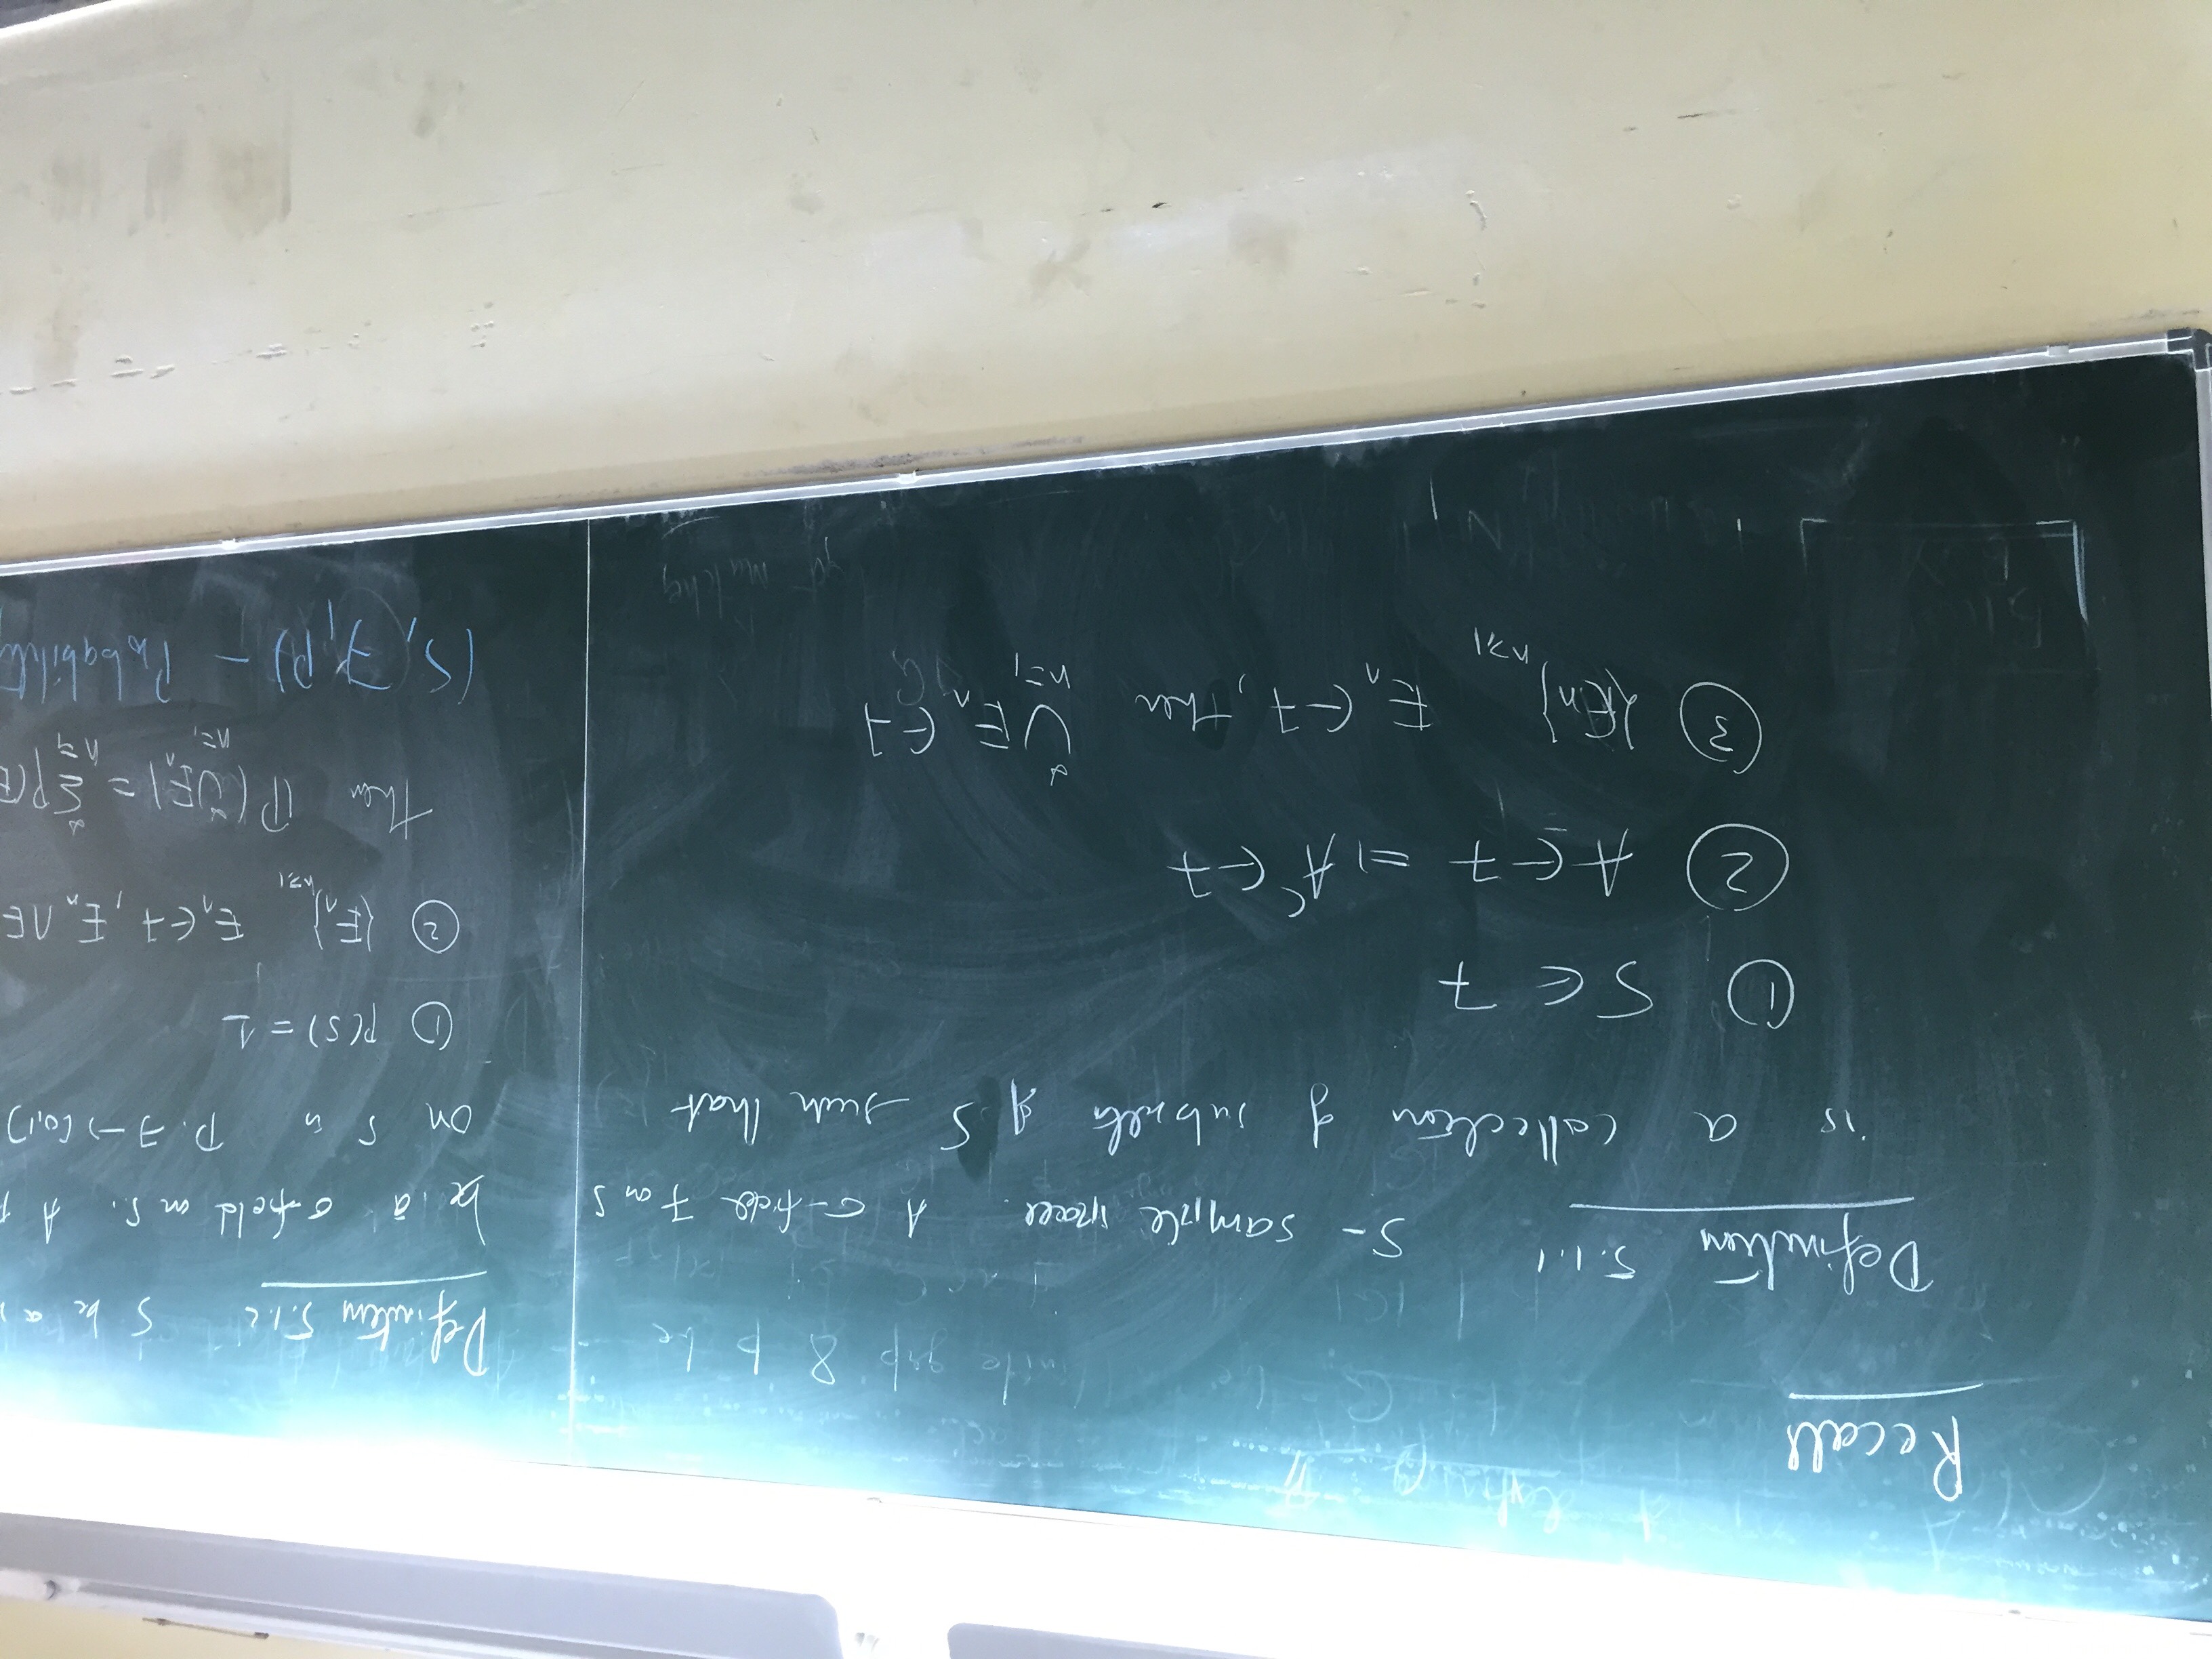 Recall
Definition 5.1.1 S- sample space. A σ-field F on S
is a collection of subsets of S such that
① S ∈ F
② A ∈ F ⇒ A^c ∈ F
③ {En}n≥1 En ∈ F, then ∞ ∪ n=1 En ∈ F
Definition 5.1.2 S be a
be a σ-field on S. A
on S is P: F → [0,1]
① P(S) = 1
② {En}n≥1 En ∈ F, En ∩ E
then P(∞ ∪ n=1 En) = ∞ Σ n=1 P(E
(S, F, P) - Probability